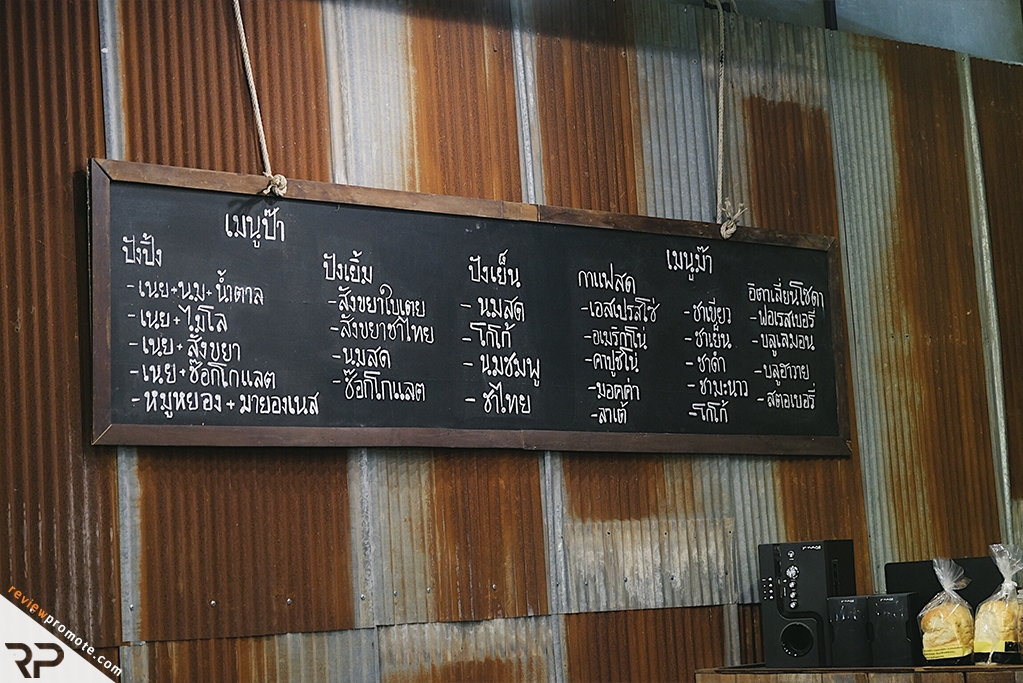 เมนูป๊า
ปังปิ้ง
-เนย+นม+น้ำตาล
-เนย+ไมโล
-เนย+สังขยา
-เนย+ช๊อกโกแลต
-หมูหยอง+มายองเนส
ปังเยิ้ม
-สังขยาใบเตย
-สังขยาชาไทย
-นมสด
-ช๊อกโกแลต
ปังเย็น
- นมสด
-โกโก้
- นมชมพู
- ชาไทย
เมนูม๊า
กาแฟสด
-เอสเปรสโซ่
-อเมริกาโน่
-คาปูชิโน่
-มอคค่า
-ลาเต้
-ชาเขียว
-ชาเย็น
-ชาดำ
-ชามะนาว
-โกโก้
อิตาเลี่ยนโซดา
-ฟอเรสเบอรี่
-บลูเลมอน
-บลูฮาวาย
-สตอเบอรี่
reviewpromote.com
RP